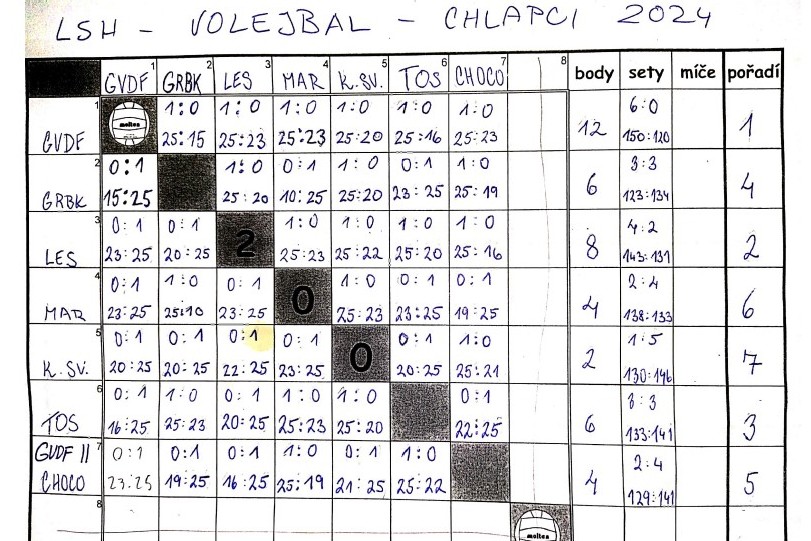 LSH - VOLEJBAL - CHLAPCI 2024
1 2 3 4 5 6 7 8
GVDF GRBK LES MAR K.SV. TOS CHOCO body sety míče pořadí
1 molten 1:0 1:0 1:0 1:0 1:0 1:0 6:0
GVDF 25:15 25:23 25:23 25:20 25:16 25:23 12 150:120 1
2 0:1 1:0 0:1 1:0 0:1 1:0 3:3
GRBK 15:25 25:20 10:25 25:20 23:25 25:19 6 123:134 4
3 0:1 0:1 2 1:0 1:0 1:0 1:0 4:2
LES 23:25 20:25 25:23 25:22 25:20 25:16 8 143:131 2
4 0:1 1:0 0:1 0 1:0 0:1 0:1 2:4
MAR 23:25 25:10 23:25 25:23 23:25 19:25 4 138:133 6
5 0:1 0:1 0:1 0:1 0 0:1 1:0 1:5
K.SV. 20:25 20:25 22:25 23:25 20:25 25:21 2 130:146 7
6 0:1 1:0 0:1 1:0 1:0 0:1 3:3
TOS 16:25 25:23 20:25 25:23 25:20 22:25 6 133:141 3
GVDF II 7 0:1 0:1 0:1 1:0 0:1 1:0 2:4
CHOCO 23:25 19:25 16:25 25:19 21:25 25:22 4 129:141 5
8 molten